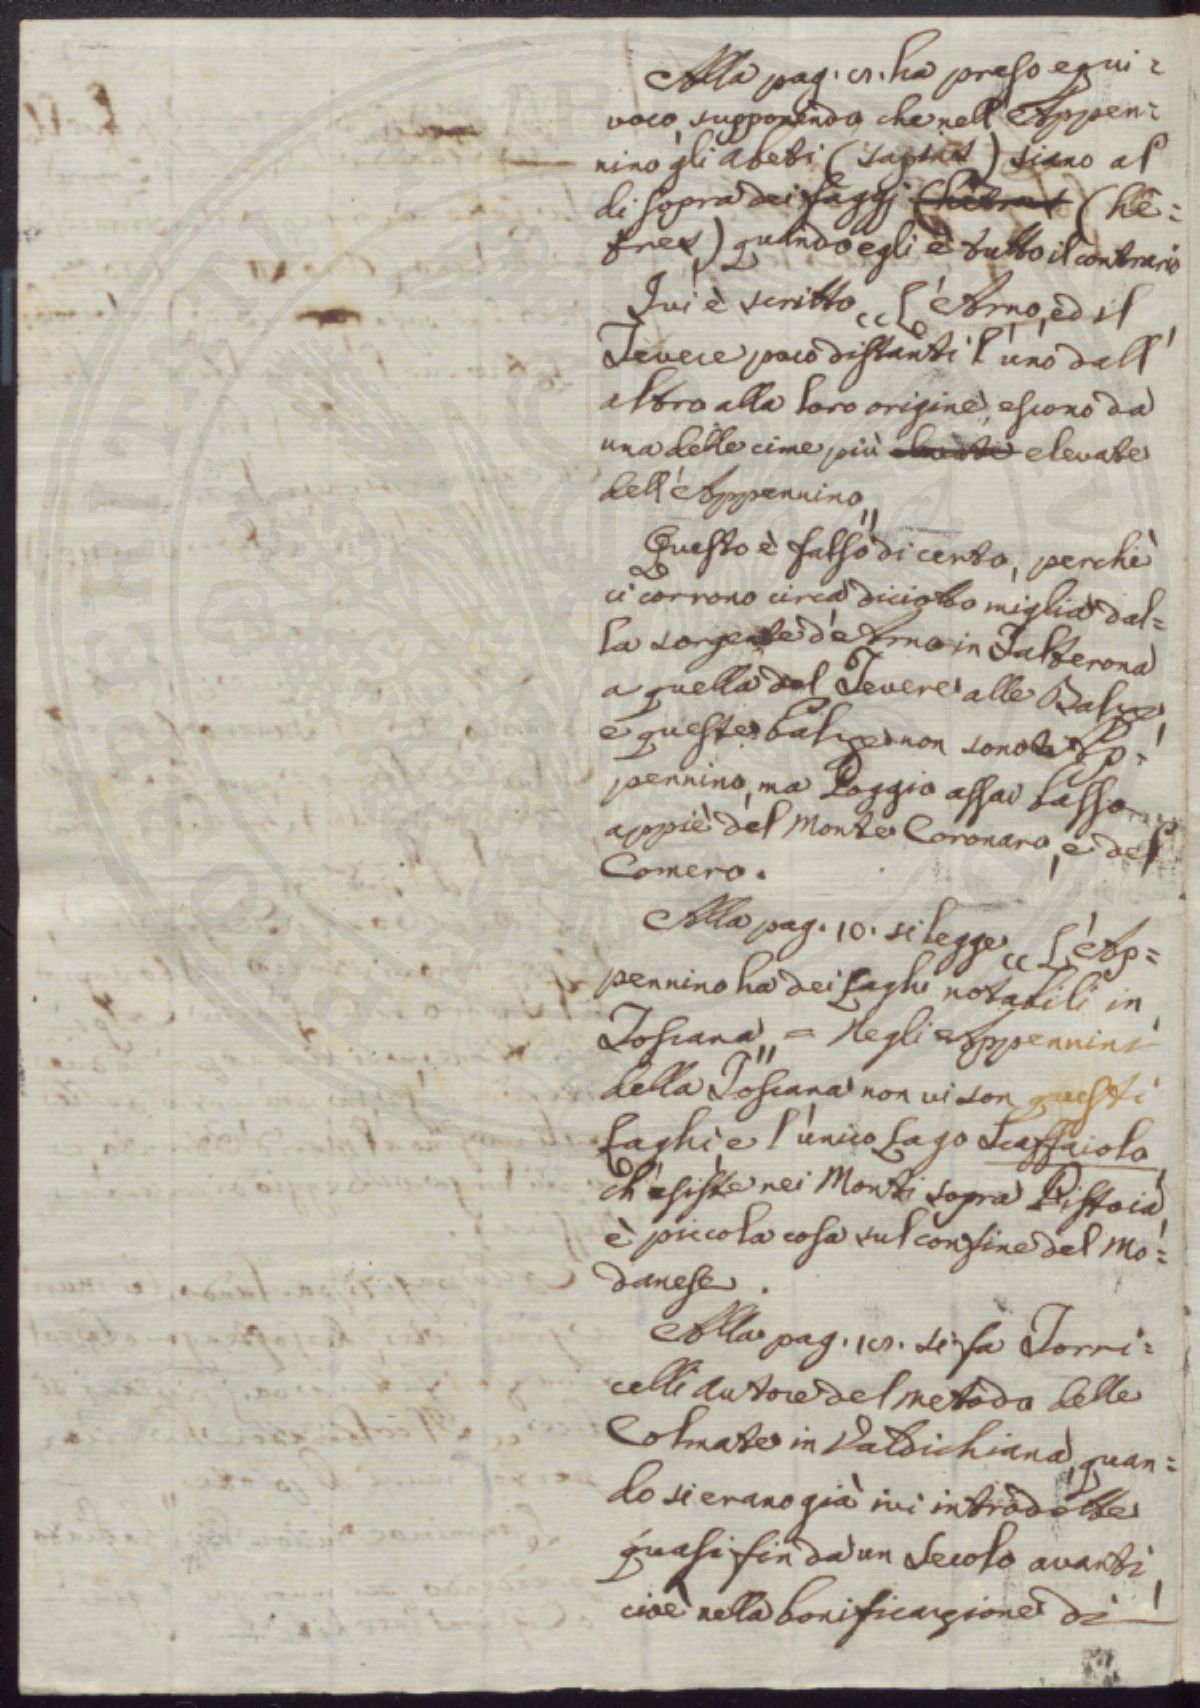 Alla pag. 5. ha preso equi=
voco supponendo che nell'Appen=
nino gli Abeti (sapins) siano al
di sopra dei faggj (hêtres) (hê=
tres) quando egli è tutto il contrario
Ivi è scritto „ L'Arno, ed il
Tevere poco distanti l'uno dall'
altro alla loro origine, escono da
una delle cime più elevate
dell'Appennino „
Questo è falso di certo, perchè
ci corrono circa diciotto miglia dal=
la sorgente d'Arno in Falterona
a quella del Tevere alle Balze,
e queste balze non sono Ap=
pennino, ma Poggio assai basso
appiè del Monte Coronaro, e del
Comero.
Alla pag. 10. si legge „ L'Ap=
pennino ha dei Laghi notabili in
Toscana „ = Negli Appennini
della Toscana non vi son questi
Laghi, e l'unico Lago Scaffaiolo
ch'esiste nei Monti sopra Pistoia,
è piccola cosa sul confine del Mo=
danese.
Alla pag. 15. si fa Torri=
celli Autore del metodo delle
Colmate in Valdichiana, quan=
do si erano già ivi introdotte
quasi fin da un Secolo avanti,
cioè nella bonificazione di